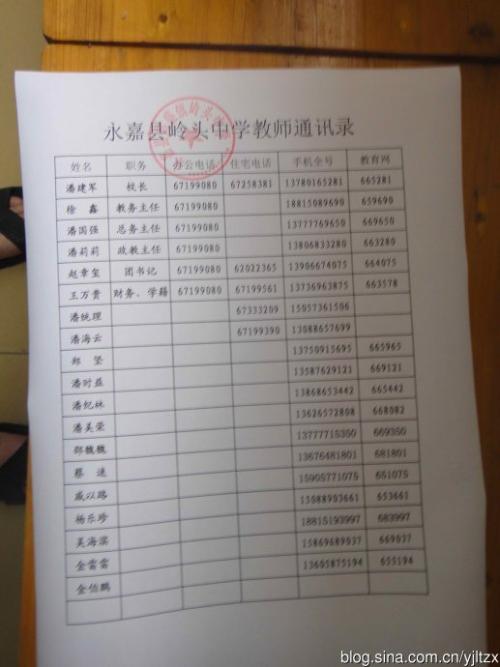 永嘉县岭头中学教师通讯录
姓名 职务 办公电话 住宅电话 手机全号 教育网
潘建军 校长 67199080 67258381 13780165281 665281
徐鑫 教务主任 67199080 18815089690 659690
潘国强 总务主任 67199080 13777769650 669650
潘莉莉 政教主任 67199080 13806833280 663280
赵章玺 团书记 67199080 62022365 13906674075 664075
王万贵 财务、学籍 67199080 67199561 13736963875 663578
潘统理 67333209 15057361506
潘海云 67199390 13088657699
郑坚 13750915695 665965
潘时益 13587629121 669121
潘纪林 13868653442 665442
潘美荣 13626572808 668082
邵巍巍 13777715350 669350
蔡速 13676481801 681801
戚以路 15905771075 651075
杨乐珍 13088903661 653661
吴海滨 18815193997 683997
金雷雷 15869689037 669037
金伯鹏 13605875194 655194
blog.sina.com.cn/yjltzx